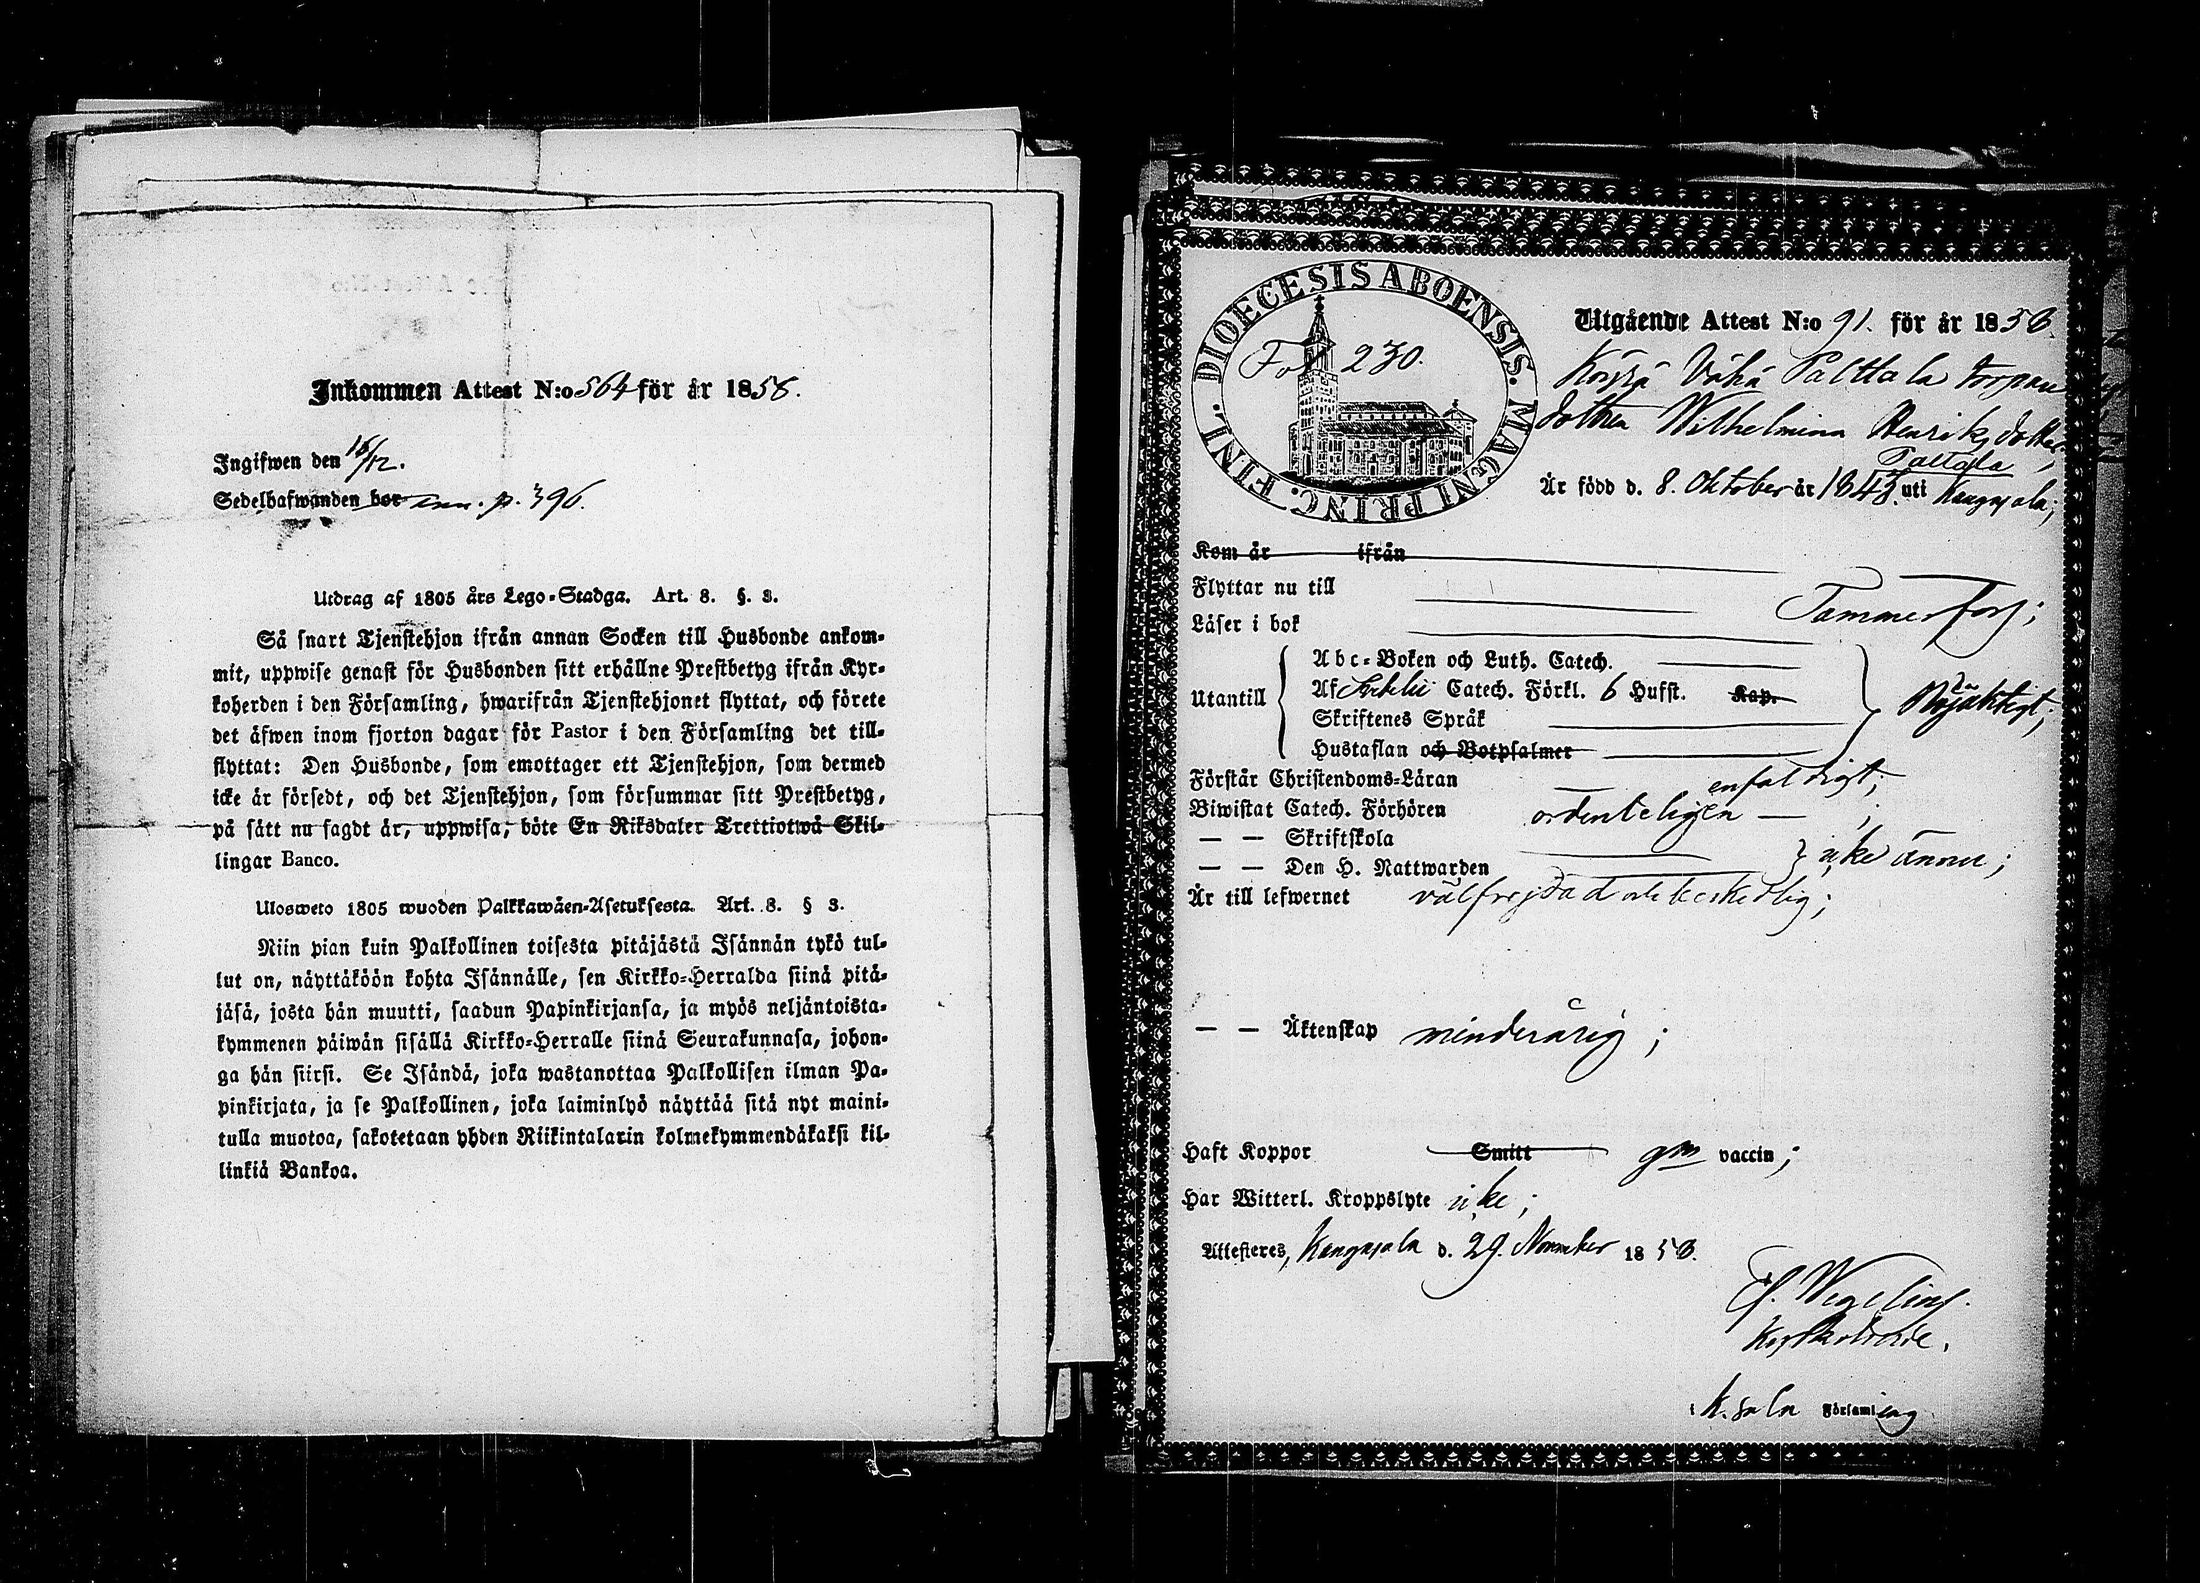 Inkommen Attest N:o 564 för år 1858.
Ingifwen den 16/12.
Sedelhafwanden bor inn. p. 396.
Utdrag af 1805 års Lego-Stadga. Art. 8. §. 3.
Så snart Tjenstehjon ifrån annan Socken till Husbonde ankom-
mit, uppwise genast för Husbonden sitt erhållne Prestbetyg ifrån Kyr-
koherden i den Församling, hwarifrån Tjenstehjonet flyttat, och förete
det äfwen inom fjorton dagar för Pastor i den Församling det till-
flyttat: Den Husbonde, som emottager ett Tjenstehjon, som dermed
icke är försedt, och det Tjenstehjon, som försummar sitt Prestbetyg,
på sätt nu sagdt är, uppwisa, böte En Riksdaler Trettiotwå Skil-
lingar Banco.
Ulosweto 1805 wuoden Palkkawäen-Asetuksesta. Art. 8. § 3.
Niin pian kuin Palkollinen toisesta pitäjästä Isännän tykö tul-
lut on, näyttäköön kohta Isännälle, sen Kirkko-Herralda siinä pitä-
jäsä, josta hän muutti, saadun Papinkirjansa, ja myös neljäntoista-
kymmenen päiwän sisällä Kirkko-Herralle siinä Seurakunnasa, johon-
ga hän siirsi. Se Isändä, joka wastanottaa Palkollisen ilman Pa-
pinkirjata, ja se Palkollinen, joka laiminlyö näyttää sitä nyt maini-
tulla muotoa, sakotetaan yhden Riikintalarin kolmekymmendäkaksi kil-
linkiä Bankoa.
DIOECESIS ABOENSIS. MAGNI PRINC. FINL.
Fol 230.
Utgående Attest N:o 91. för år 1858
Wähä Palttala torpare
dottren Wilhelmina Henriksdotter;
Är född d. 8. Oktober år 1843. uti Kangasala;
Kom år ifrån
Flyttar nu till Tammerfors;
Läser i bok
Utantill
Abc-Boken och Luth. Catech.
Af Catech. Förkl. 6 Hufst. Kap.
Skriftenes Språk
Hustaflan och Botpsalmer
Nöjaktigt;
Förstår Christendoms-Läran enfaldigt;
Biwistat Catech. Förhören ordenteligen — ;
— — Skriftskola
— — Den H. Nattwarden
icke ännu;
Är till lefwernet välfrejdad och beskedlig;
— — Äktenskap minderårig;
Haft Koppor Smitt gm vaccin;
Har Witterl. Kroppslyte icke;
Attesteres, Kangasala d. 29. November 1858.
Wegelius.
Kyrkoherde.
i K.sala Församling